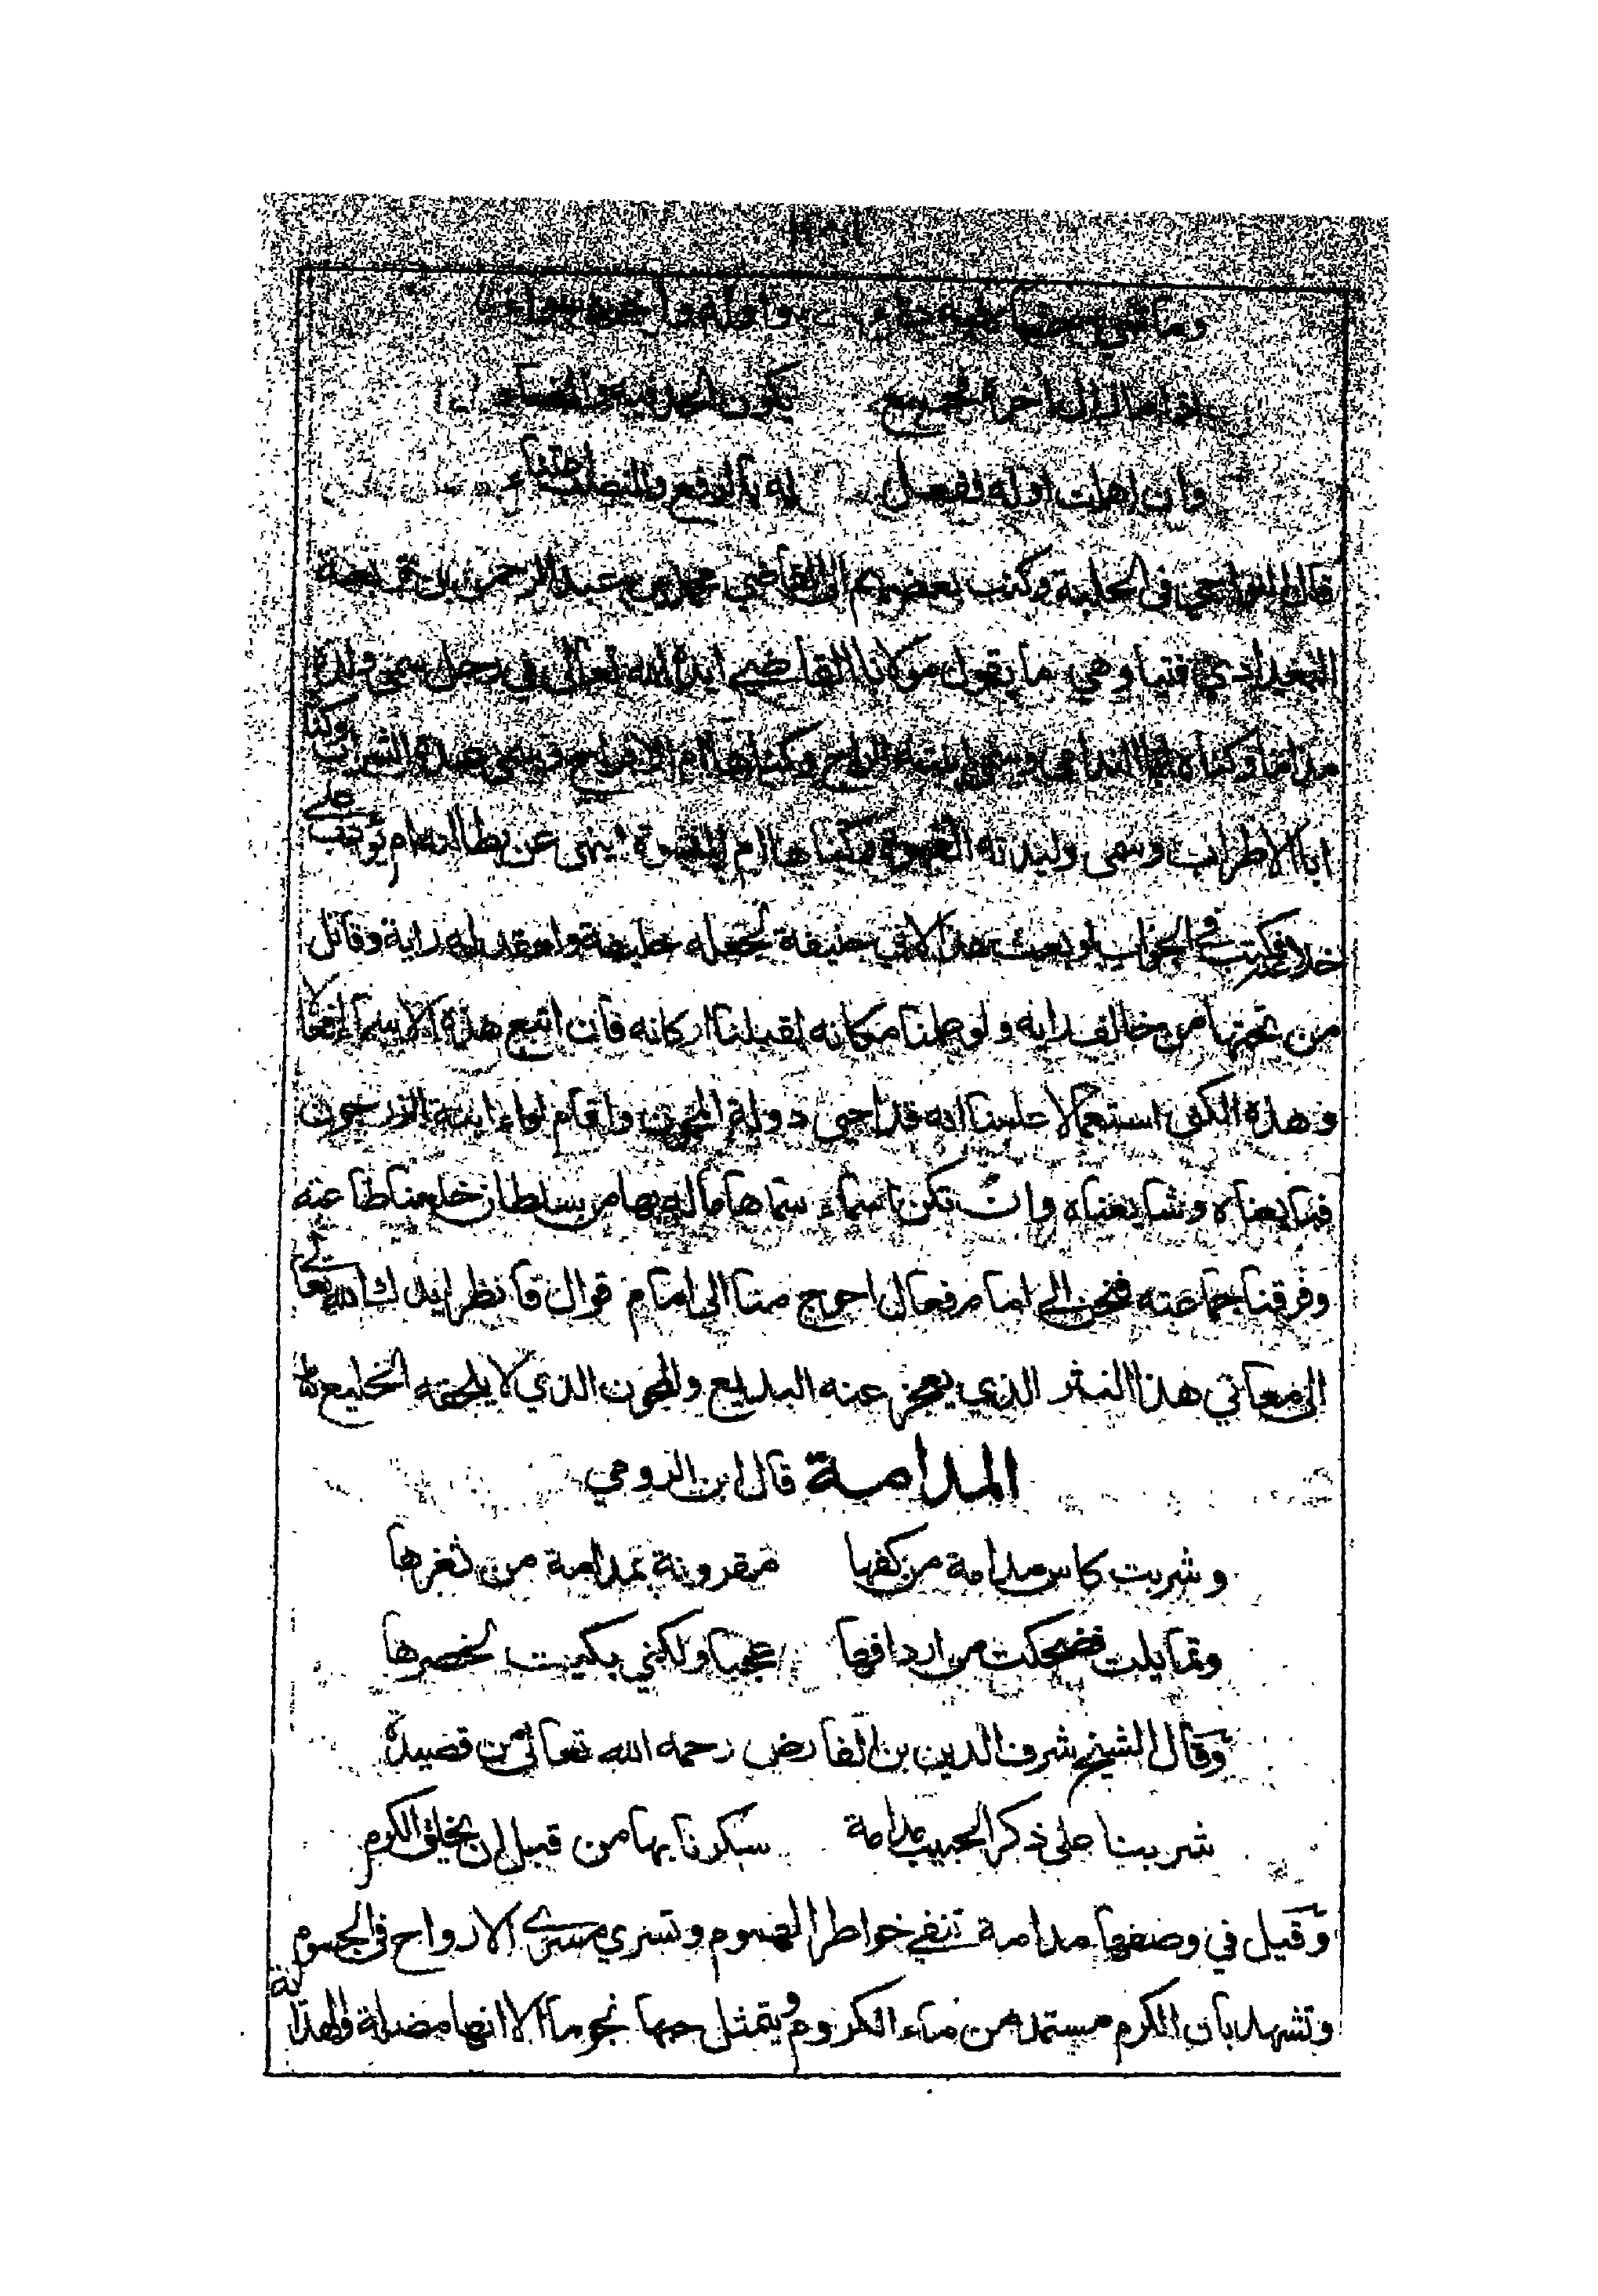 وما شيء حشاه فيه داء واوله واخره سواء
اذا ما زال اخره فجمع يكون الحد فيه والمضاء
وان اهملت اوله ففعل له بالرفع والنصب اعتناء
قال النواجي في الحلبة وكتب بعضهم الى القاضي محمد بن عبد الرحمن بن قريعة
البغدادي فتيا وهي ما يقول مولانا القاضي ايده الله تعالى في رجل سمى ولده
مداما وكناه ابا الندامى وسمى ابنته الراح وكناها ام الافراح وسمى عبده الشراب وكناه
ابا الاطراب وسمى وليدته القهوة وكناها ام النشوة اينهى عن بطالته ام يؤدب على
خلاعته فكتب في الجواب لو بعث هذا لابي حنيفة لجعله خليفة ولعقد له راية وقاتل
من تحتها من خالف رايه ولو علمنا مكانه لقبلنا اركانه فان اتبع هذه الاسماء افعالا
وهذه الكنى استعمالا علمنا انه قد احيى دولة المجون واقام لواء ابنة الزرجون
فبايعناه وشايعناه وان تكن اسماء سماها ماله بها من سلطان خلعنا طاعته
وفرقنا جماعته فنحن الى امام فعال احوج منا الى امام قوال فانظر ايدك الله تعالى
الى معاني هذا النثر الذي يعجز عنه البديع والمجون الذي لا يلحقه الخليع
المدامة قال ابن الرومي
وشربت كاس مدامة من كفها مقرونة بمدامة من ثغرها
وتمايلت فضحكت من اردافها عجبا ولكني بكيت لخصرها
وقال الشيخ شرف الدين بن الفارض رحمه الله تعالى من قصيدة
شربنا على ذكر الحبيب مدامة سكرنا بها من قبل ان يخلق الكرم
وقيل في وصفها مدامة تنفي خواطر الهموم وتسري مسرى الارواح في الجسوم
وتشهد بان الكرم مستمد من ماء الكروم ويتمثل حبها نجوما الا انها مضلة والهداية